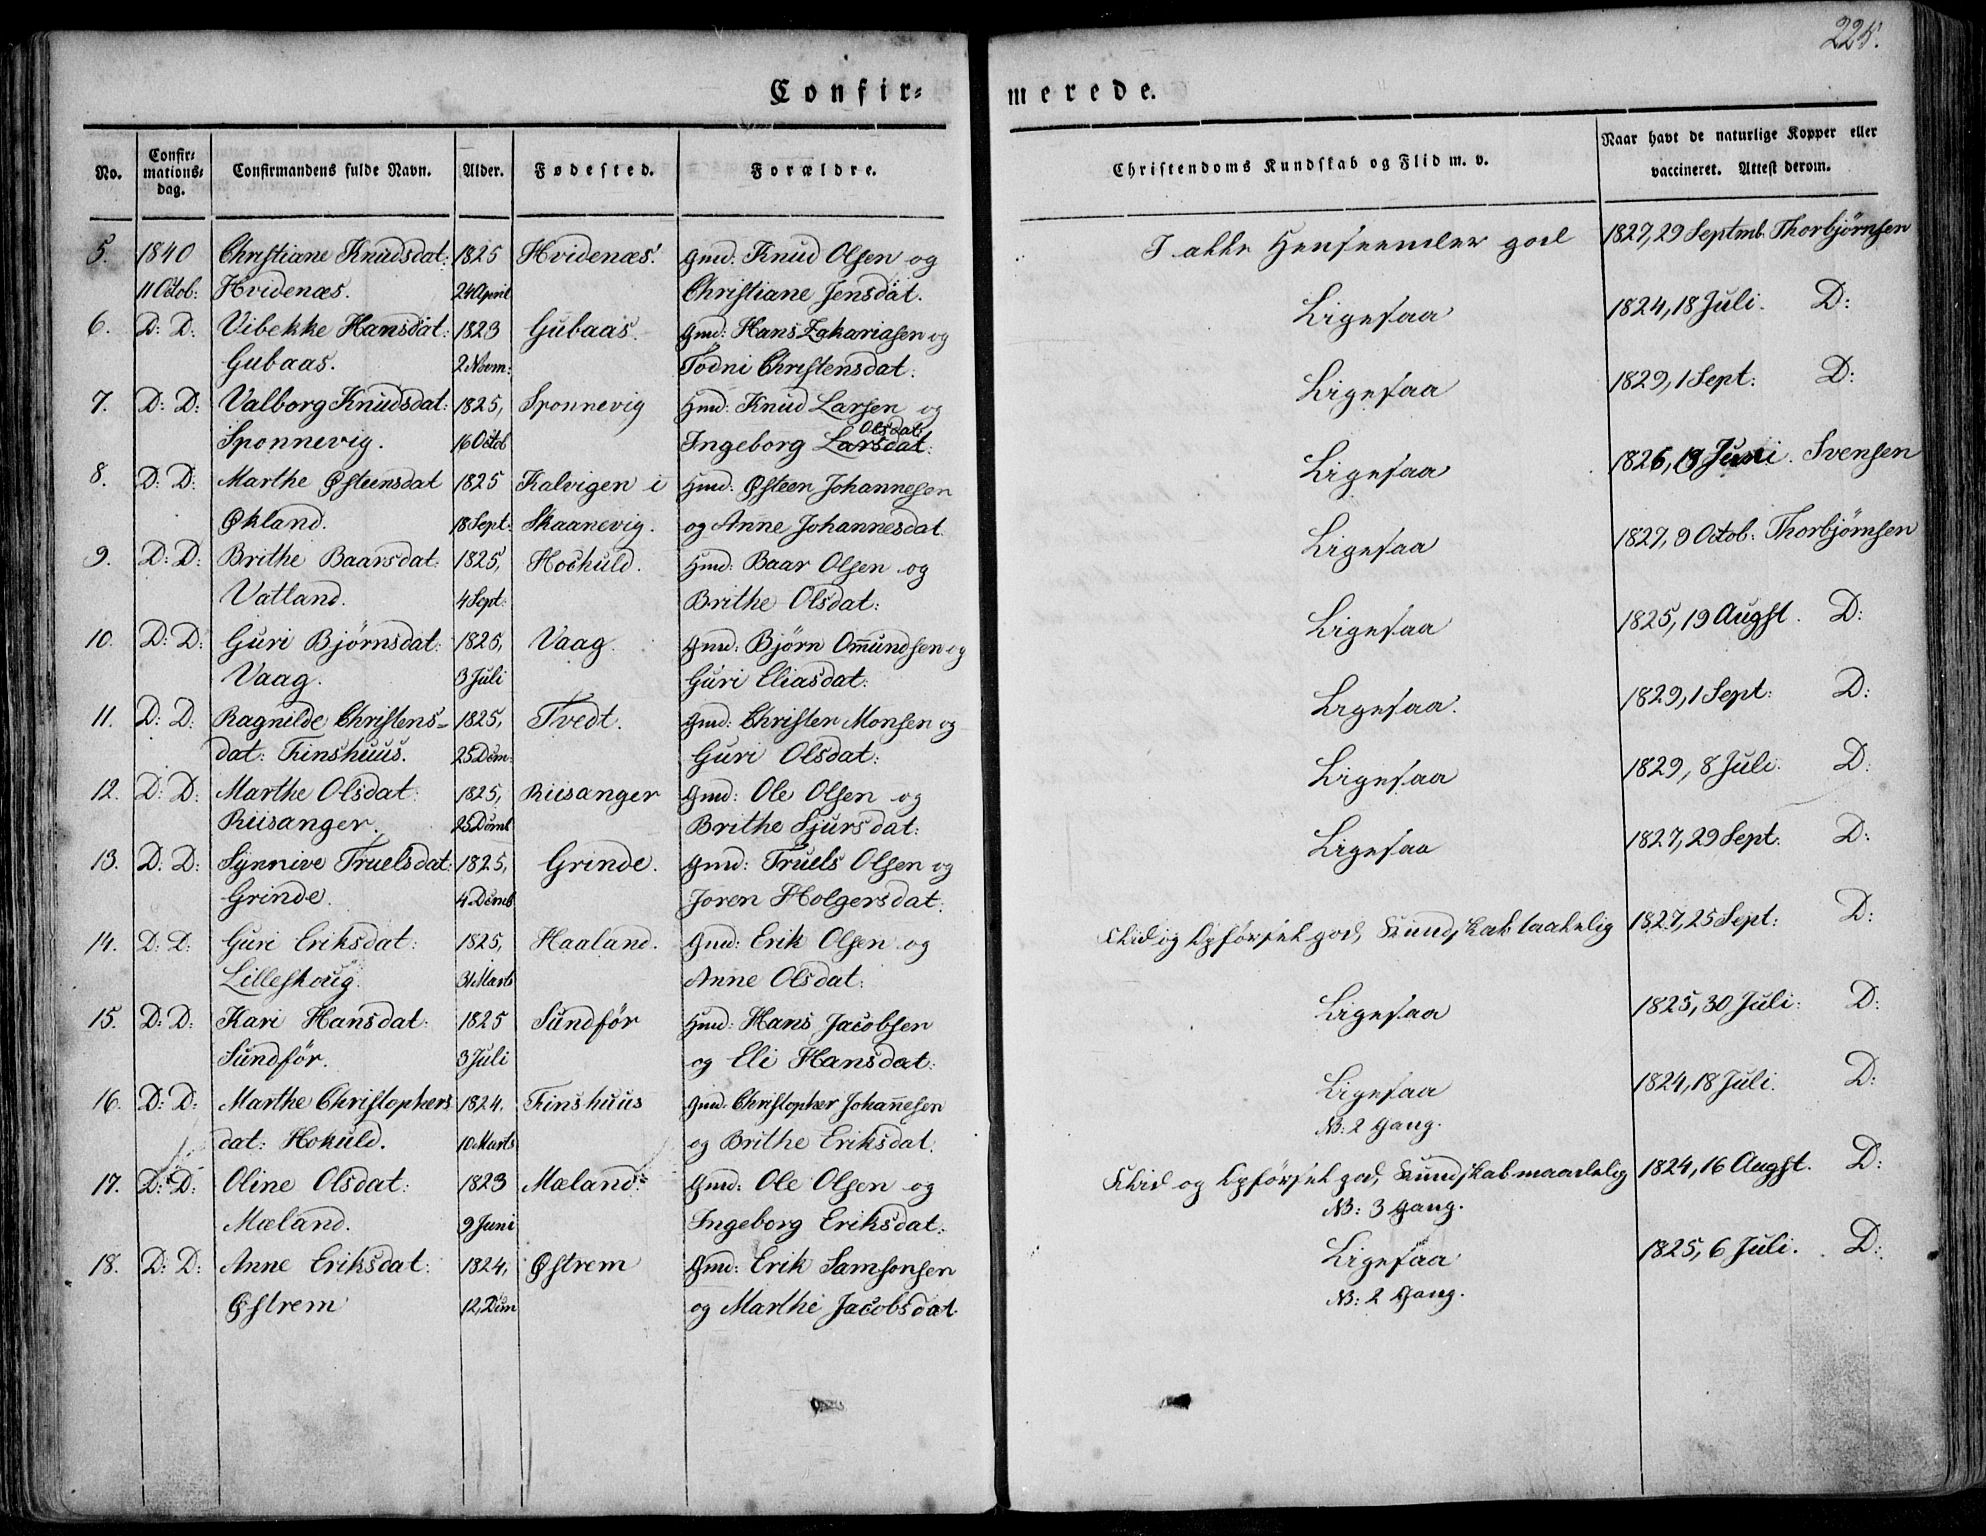 225.
Confir= merede.
No. Confir=mations=dag. Confirmandens fulde Navn. Alder. Fødested. Forældre. Christendoms Kundskab og Flid m. v. Naar havt de naturlige Kopper eller vaccineret. Attest derom.
5. 1840 Christiane Knudsdat: 1825 Hvidenæs. Gmd: Knud Olsen og I alle Henseender god 1827, 29 Septmb. Thorbjørnsen
11 Octob: Hvidenæs. 24 April Christiane Jensdat.
6. D: D: Vibekke Hansdat: 1823 Gubaas. Gmd: Hans Zakariasen og Ligesaa 1824, 18 Juli. D:
Gubaas. 2 Novm: Todni Christensdat:
7. D: D: Valborg Knudsdat: 1825, Sponnevig Hmd: Knud Larsen og Ligesaa 1829, 1 Sept: D:
Sponnevig. 16 Octob Ingeborg Larsdat: Olsdat:
8. D: D: Marthe Østeensdat 1825 Kalvigen i Hmd: Østeen Johannesen Ligesaa 1826, Juni. Svensen
Økland. 18 Sept: Skaanevig. og Anne Johannesdat.
9. D: D: Brithe Baarsdat: 1825, Hoskuld. Hmd: Baar Olsen og Ligesaa 1827, 9 Octob: Thorbjørnsen
Vatland. 4 Sept: Brithe Olsdat:
10. D: D: Guri Bjørnsdat: 1825, Vaag. Gmd: Bjørn Ommundsen og Ligesaa 1825, 19 Augst. D:
Vaag. 3 Juli Guri Eliasdat:
11. D: D: Ragnilde Christens= 1825, Tvedt. Gmd: Christen Monsen og Ligesaa. 1829, 1 Sept: D:
dat: Finshuus. 25 Dcm: Guri Olsdat:
12. D: D: Marthe Olsdat: 1825, Riisanger Gmd: Ole Olsen og Ligesaa 1829, 8 Juli. D:
Riisanger. 25 Dcmb Brithe Sjursdat:
13. D: D: Synnive Truelsdat: 1825, Grinde. Gmd: Truels Olsen og Ligesaa 1827, 29 Sept: D:
Grinde. 4 Dcmb Joren Holgersdat:
14. D: D: Guri Eriksdat: 1825, Haaland. Gmd: Erik Olsen og Flid og Opførsel god, Kundskab taalelig 1827, 25 Sept: D:
Lilleskoug. 31 Marts Anne Olsdat:
15. D: D: Kari Hansdat: 1825 Sundfør Hmd: Hans Jacobsen Ligesaa 1825, 30 Juli: D:
Sundfør. 3 Juli og Eli Hansdat:
16. D: D: Marthe Christophers 1824, Finshuus Gmd: Christopher Johannesen Ligesaa 1824, 18 Juli. D:
dat: Hokuld. 10 Marts og Brithe Eriksdat. NB: 2 Gang.
17. D: D: Oline Olsdat: 1823 Mæland: Gmd: Ole Olsen og Flid og Opførsel god, Kundskab maadelig 1824, 16 Augst. D:
Mæland. 9 Juni Ingeborg Eriksdat: NB: 3 Gang.
18. D: D: Anne Eriksdat: 1824, Østrem Gmd: Erik Samsonsen Ligesaa 1825, 6 Juli. D:
Østrem 12, Dcm og Marthe Jacobsdat. NB: 2 Gang.